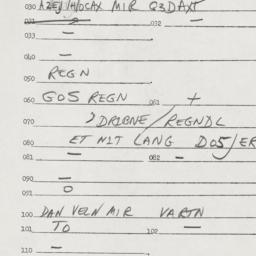 030 AZEJ/H/OCAX MIR Q3DAXT
031 032 —
033 —
040 —
050 REGN
060 GOS REGN 061 +
070 DRIBNE/REGNDL
080 ET NIT LANG DOS/ER
081 — 082 —
090 —
091 O
100 DAN VELN MIR VARTN
101 TO 102 —
110 —